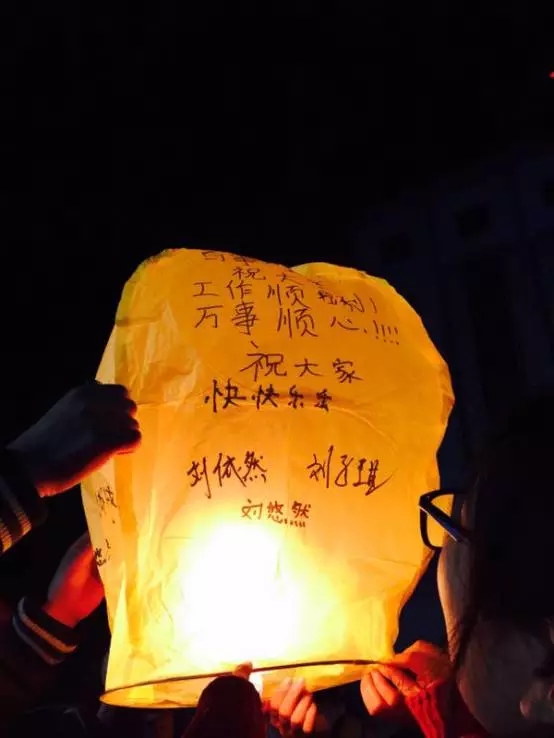 祝大
工作顺利!!
万事顺心!!!!
祝大家
快快乐乐
刘依然 刘子琪
刘悠然